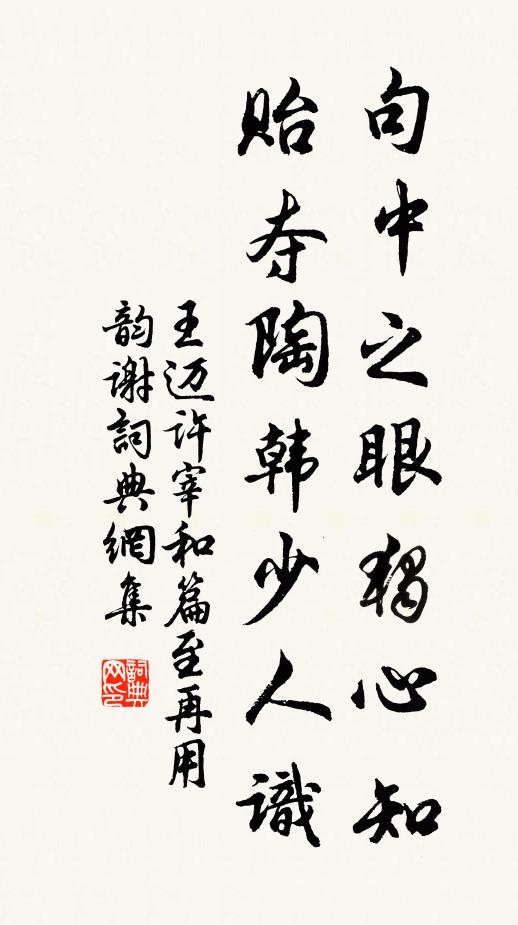 句中之眼独心知
贻夺陶韩少人識
王迈许宰和篇至再用
韵谢詞典網集
詞典网印